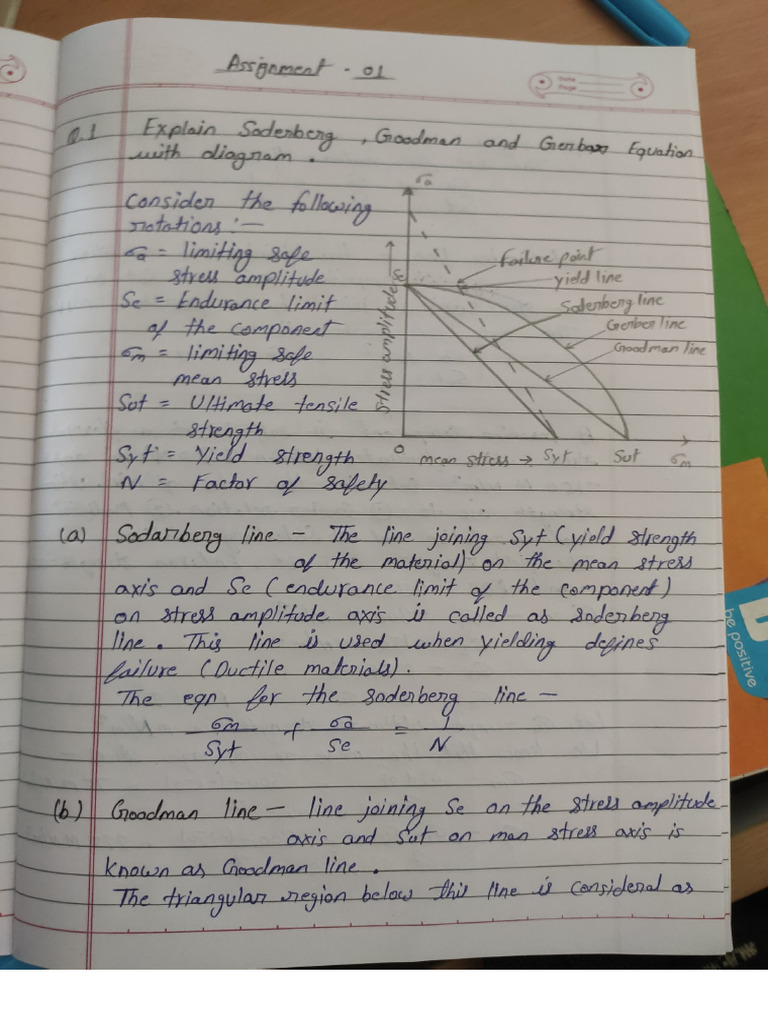 Assignment - 01
Q.1 Explain Soderberg, Goodman and Gerber Equation
with diagram.
Consider the following
notations:—
σa = limiting safe
stress amplitude
Se = Endurance limit
of the component
σm = limiting safe
mean stress
Sut = Ultimate tensile
strength
Syt = Yield strength
N = Factor of safety
σa
Se
Stress amplitude →
Failure point
yield line
Soderberg line
Gerber line
Goodman line
0 mean stress → Syt Sut σm
(a) Sodarberg line - The line joining Syt (yield strength
of the material) on the mean stress
axis and Se (endurance limit of the component)
on stress amplitude axis is called as soderberg
line. This line is used when yielding defines
failure (Ductile materials).
The eqn for the soderberg line —
σm/Syt + σa/Se = 1/N
(b) Goodman line — line joining Se on the stress amplitude
axis and Sut on man stress axis is
known as Goodman line.
The triangular region below this line is consideral as
be positive